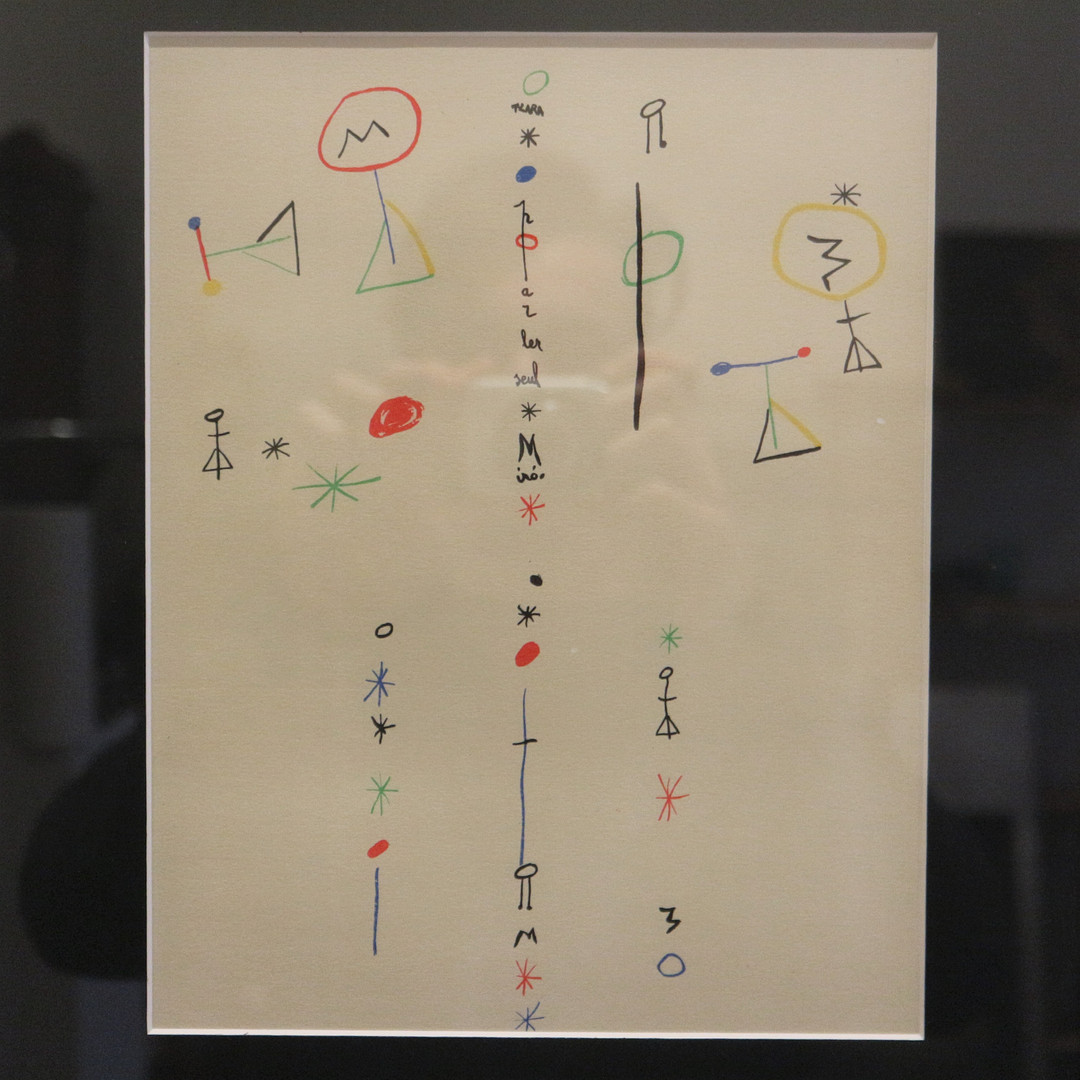 TZARA
p
a
r
ler
seul
M
iró.